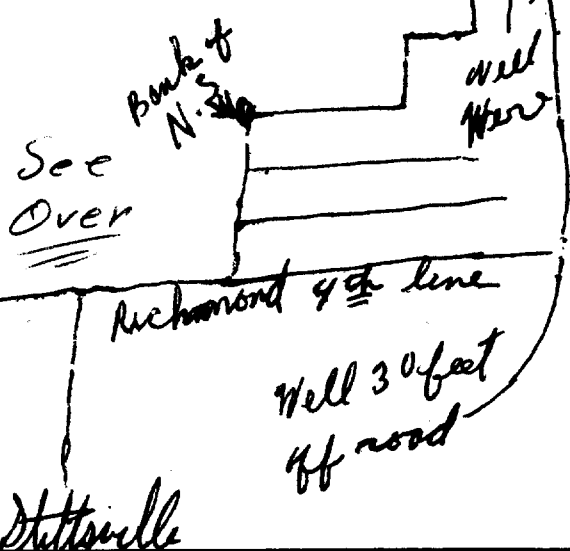 Bank of
N.S.
Well
Here
See
Over
Richmond 4th line
Well 30 feet
off road
Stittsville